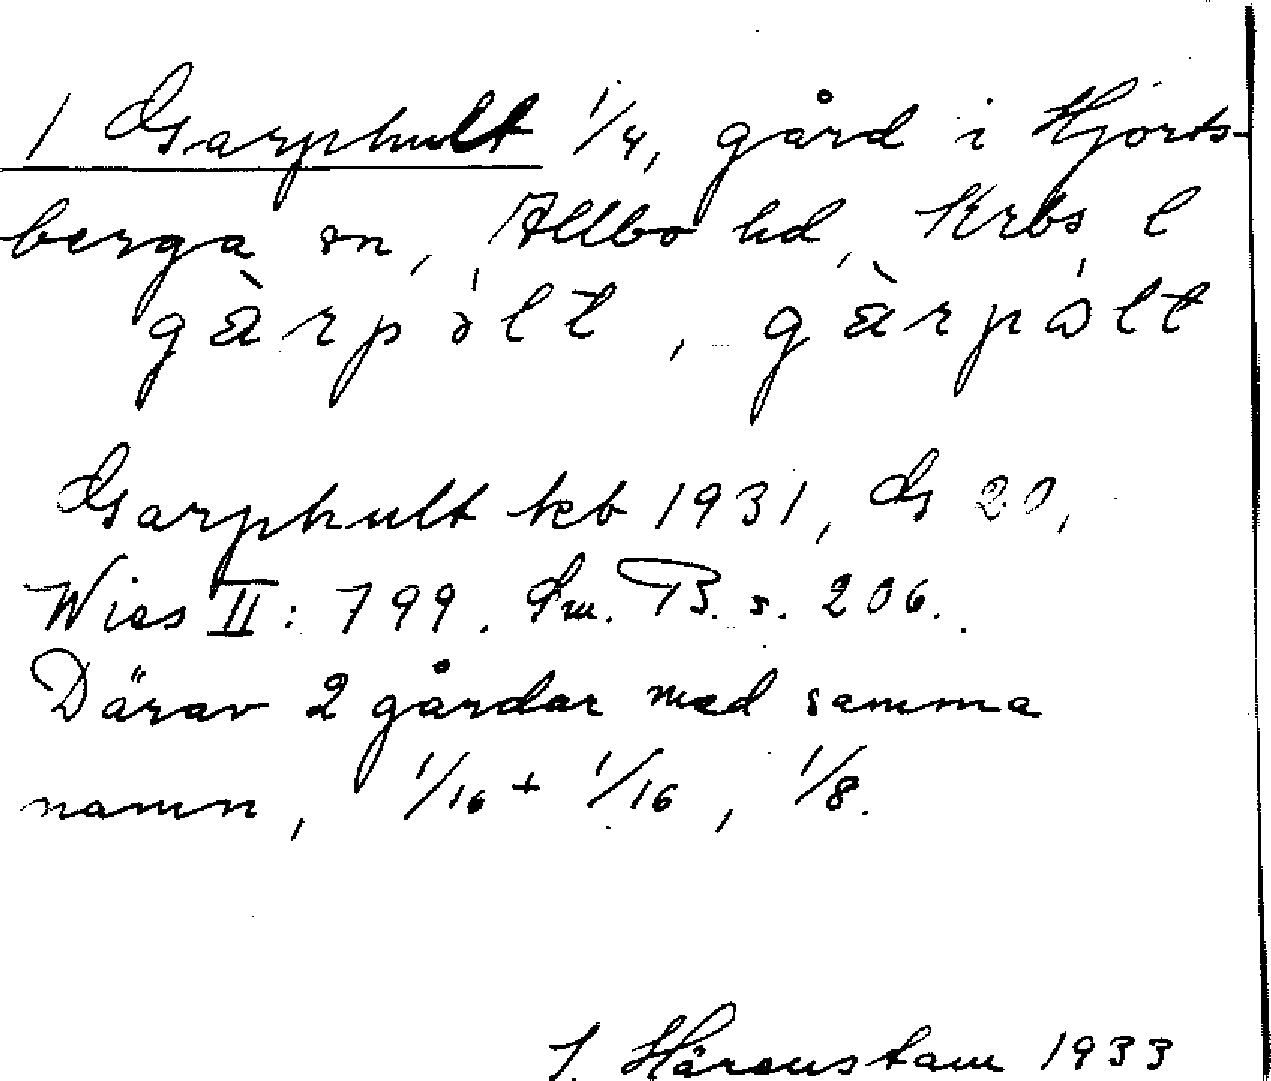 1 Garphult 1/4, gård i Hjorts-
berga sn, Allbo hd, Krbs l
gàrpòlt, gàrpòlt
Garphult kb 1931, G 20,
Wies II: 799. Sm. B. s. 206.
Därav 2 gårdar med samma
namn, 1/16 + 1/16, 1/8.
Härenstam 1933